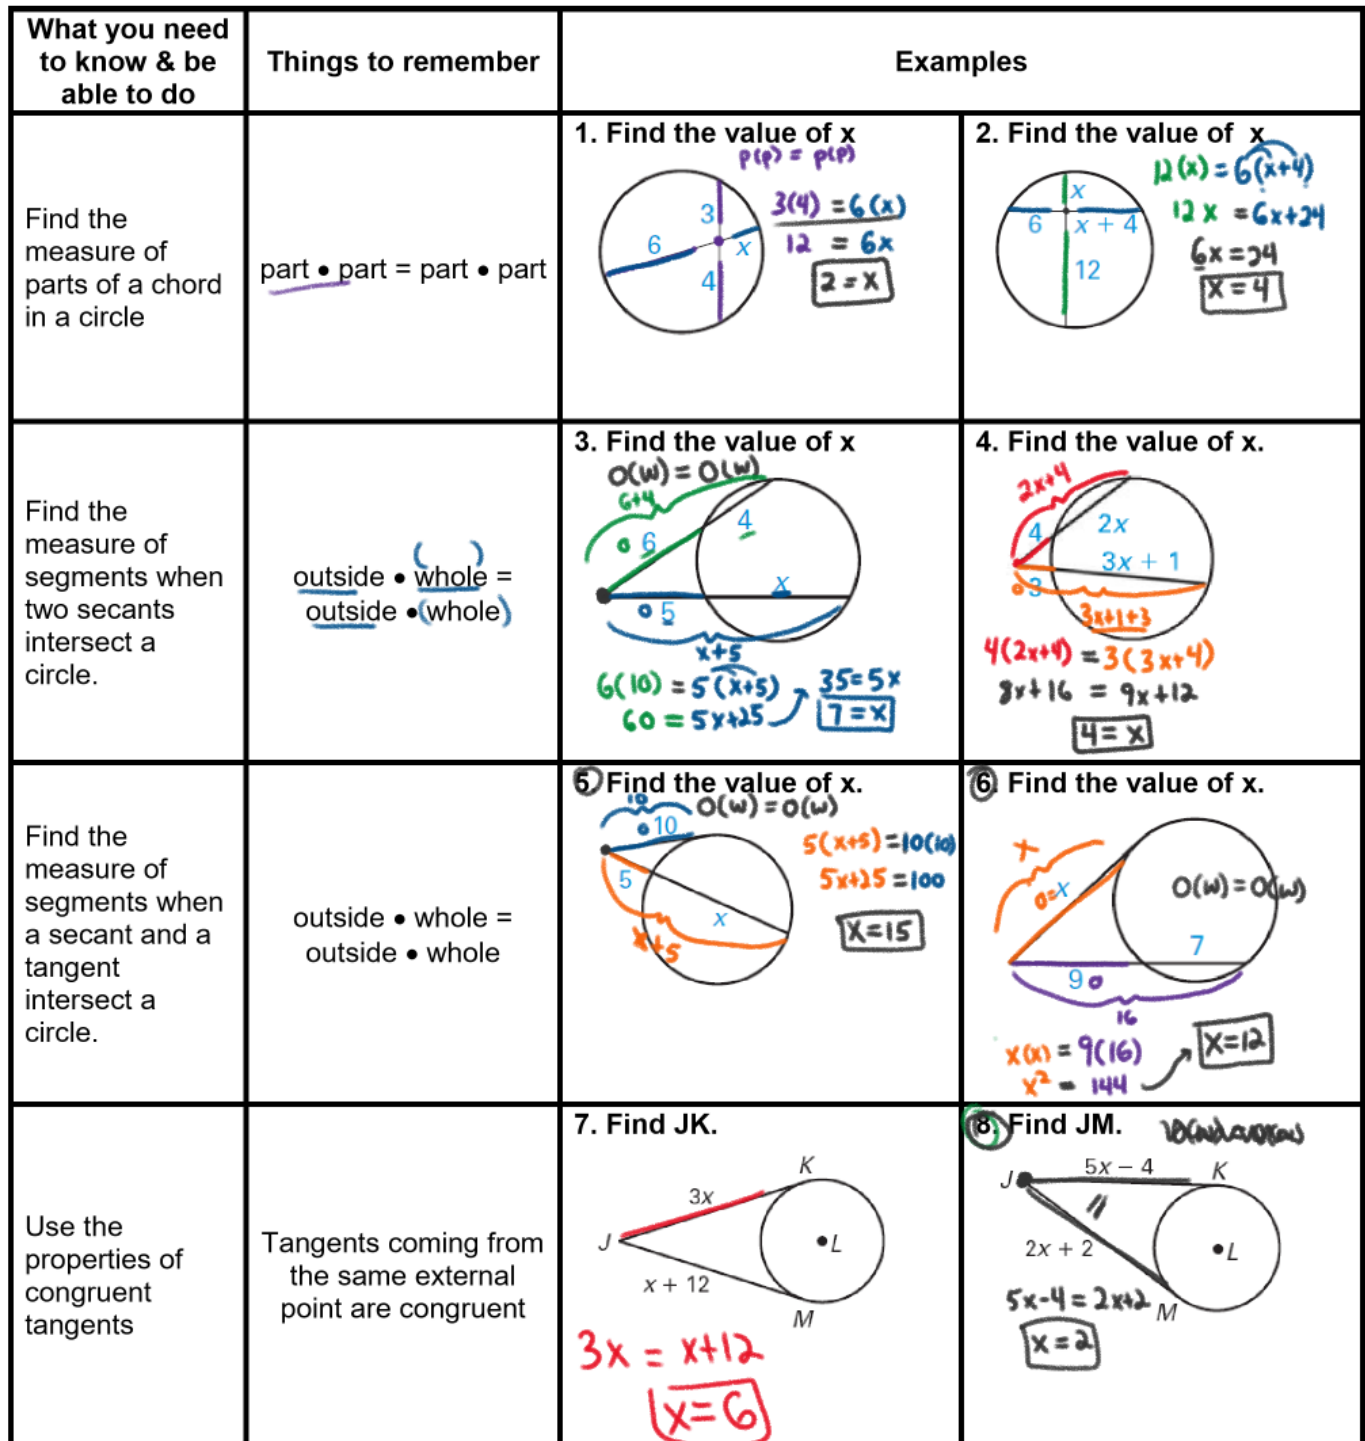 What you need
to know & be
able to do
Things to remember
Examples
Find the
measure of
parts of a chord
in a circle
part • part = part • part
1. Find the value of x
p(p) = p(p)
3
6
x
4
3(4) = 6(x)
12 = 6x
2 = x
2. Find the value of x
x
6
x + 4
12
12(x) = 6(x+4)
12x = 6x+24
6x = 24
x = 4
Find the
measure of
segments when
two secants
intersect a
circle.
( )
outside • whole =
outside • (whole)
3. Find the value of x
O(w) = O(w)
6+4
4
o 6
x
o 5
x+5
6(10) = 5(x+5)
60 = 5x+25
35 = 5x
7 = x
4. Find the value of x.
2x+4
4
2x
3x + 1
o 3
3x+1+3
4(2x+4) = 3(3x+4)
8x+16 = 9x+12
4 = x
Find the
measure of
segments when
a secant and a
tangent
intersect a
circle.
outside • whole =
outside • whole
5. Find the value of x.
10
O(w) = O(w)
o 10
5
x
x+5
5(x+5) = 10(10)
5x+25 = 100
x = 15
6. Find the value of x.
x
o = x
O(w) = O(w)
7
9 o
16
x(x) = 9(16)
x² = 144
x = 12
Use the
properties of
congruent
tangents
Tangents coming from
the same external
point are congruent
7. Find JK.
K
3x
J
L
x + 12
M
3x = x+12
x = 6
8. Find JM.
5x − 4
K
J
2x + 2
L
M
5x-4 = 2x+2
x = 2